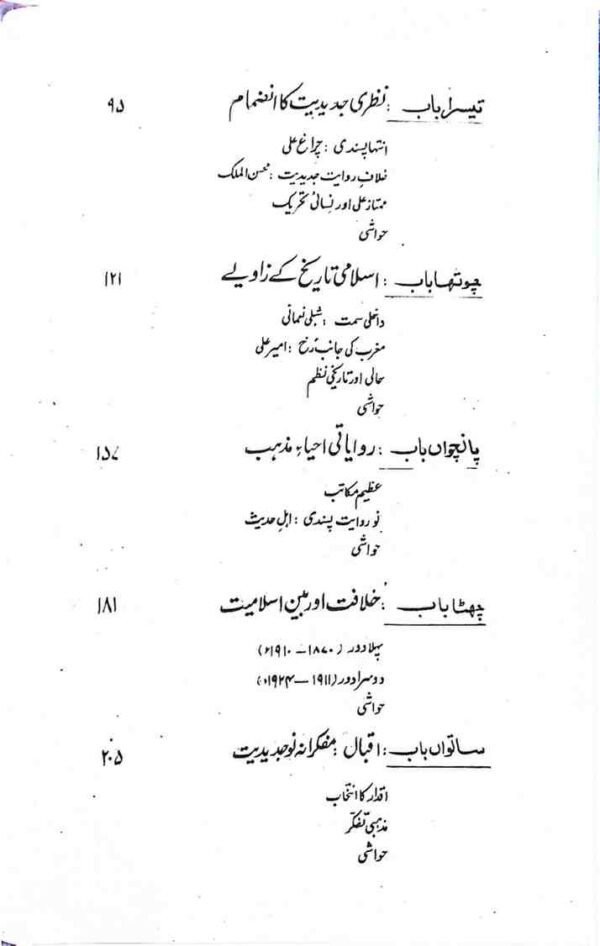 تیسرا باب : نظری جدیدیت کا انضمام ۹۵
انتہا پسندی : چراغ علی
خلافِ روایت جدیدیت : محسن الملک
ممتاز علی اور نسائی تحریک
حواشی
چوتھا باب : اسلامی تاریخ کے زاویے ۱۲۱
داخلی سمت : شبلی نعمانی
مغرب کی جانب رُخ : امیر علی
حالی اور تاریخی نظم
حواشی
پانچواں باب : روایاتی احیاءِ مذہب ۱۵۷
عظیم مکاتب
نو روایت پسندی : اہلِ حدیث
حواشی
چھٹا باب : خلافت اور بین اسلامیت ۱۸۱
پہلا دور (۱۸۷۰ – ۱۹۱۰ء)
دوسرا دور (۱۹۱۱ – ۱۹۲۴ء)
حواشی
ساتواں باب : اقبال : مفکرانہ نو جدیدیت ۲۰۵
اقدار کا انتخاب
مذہبی تفکّر
حواشی